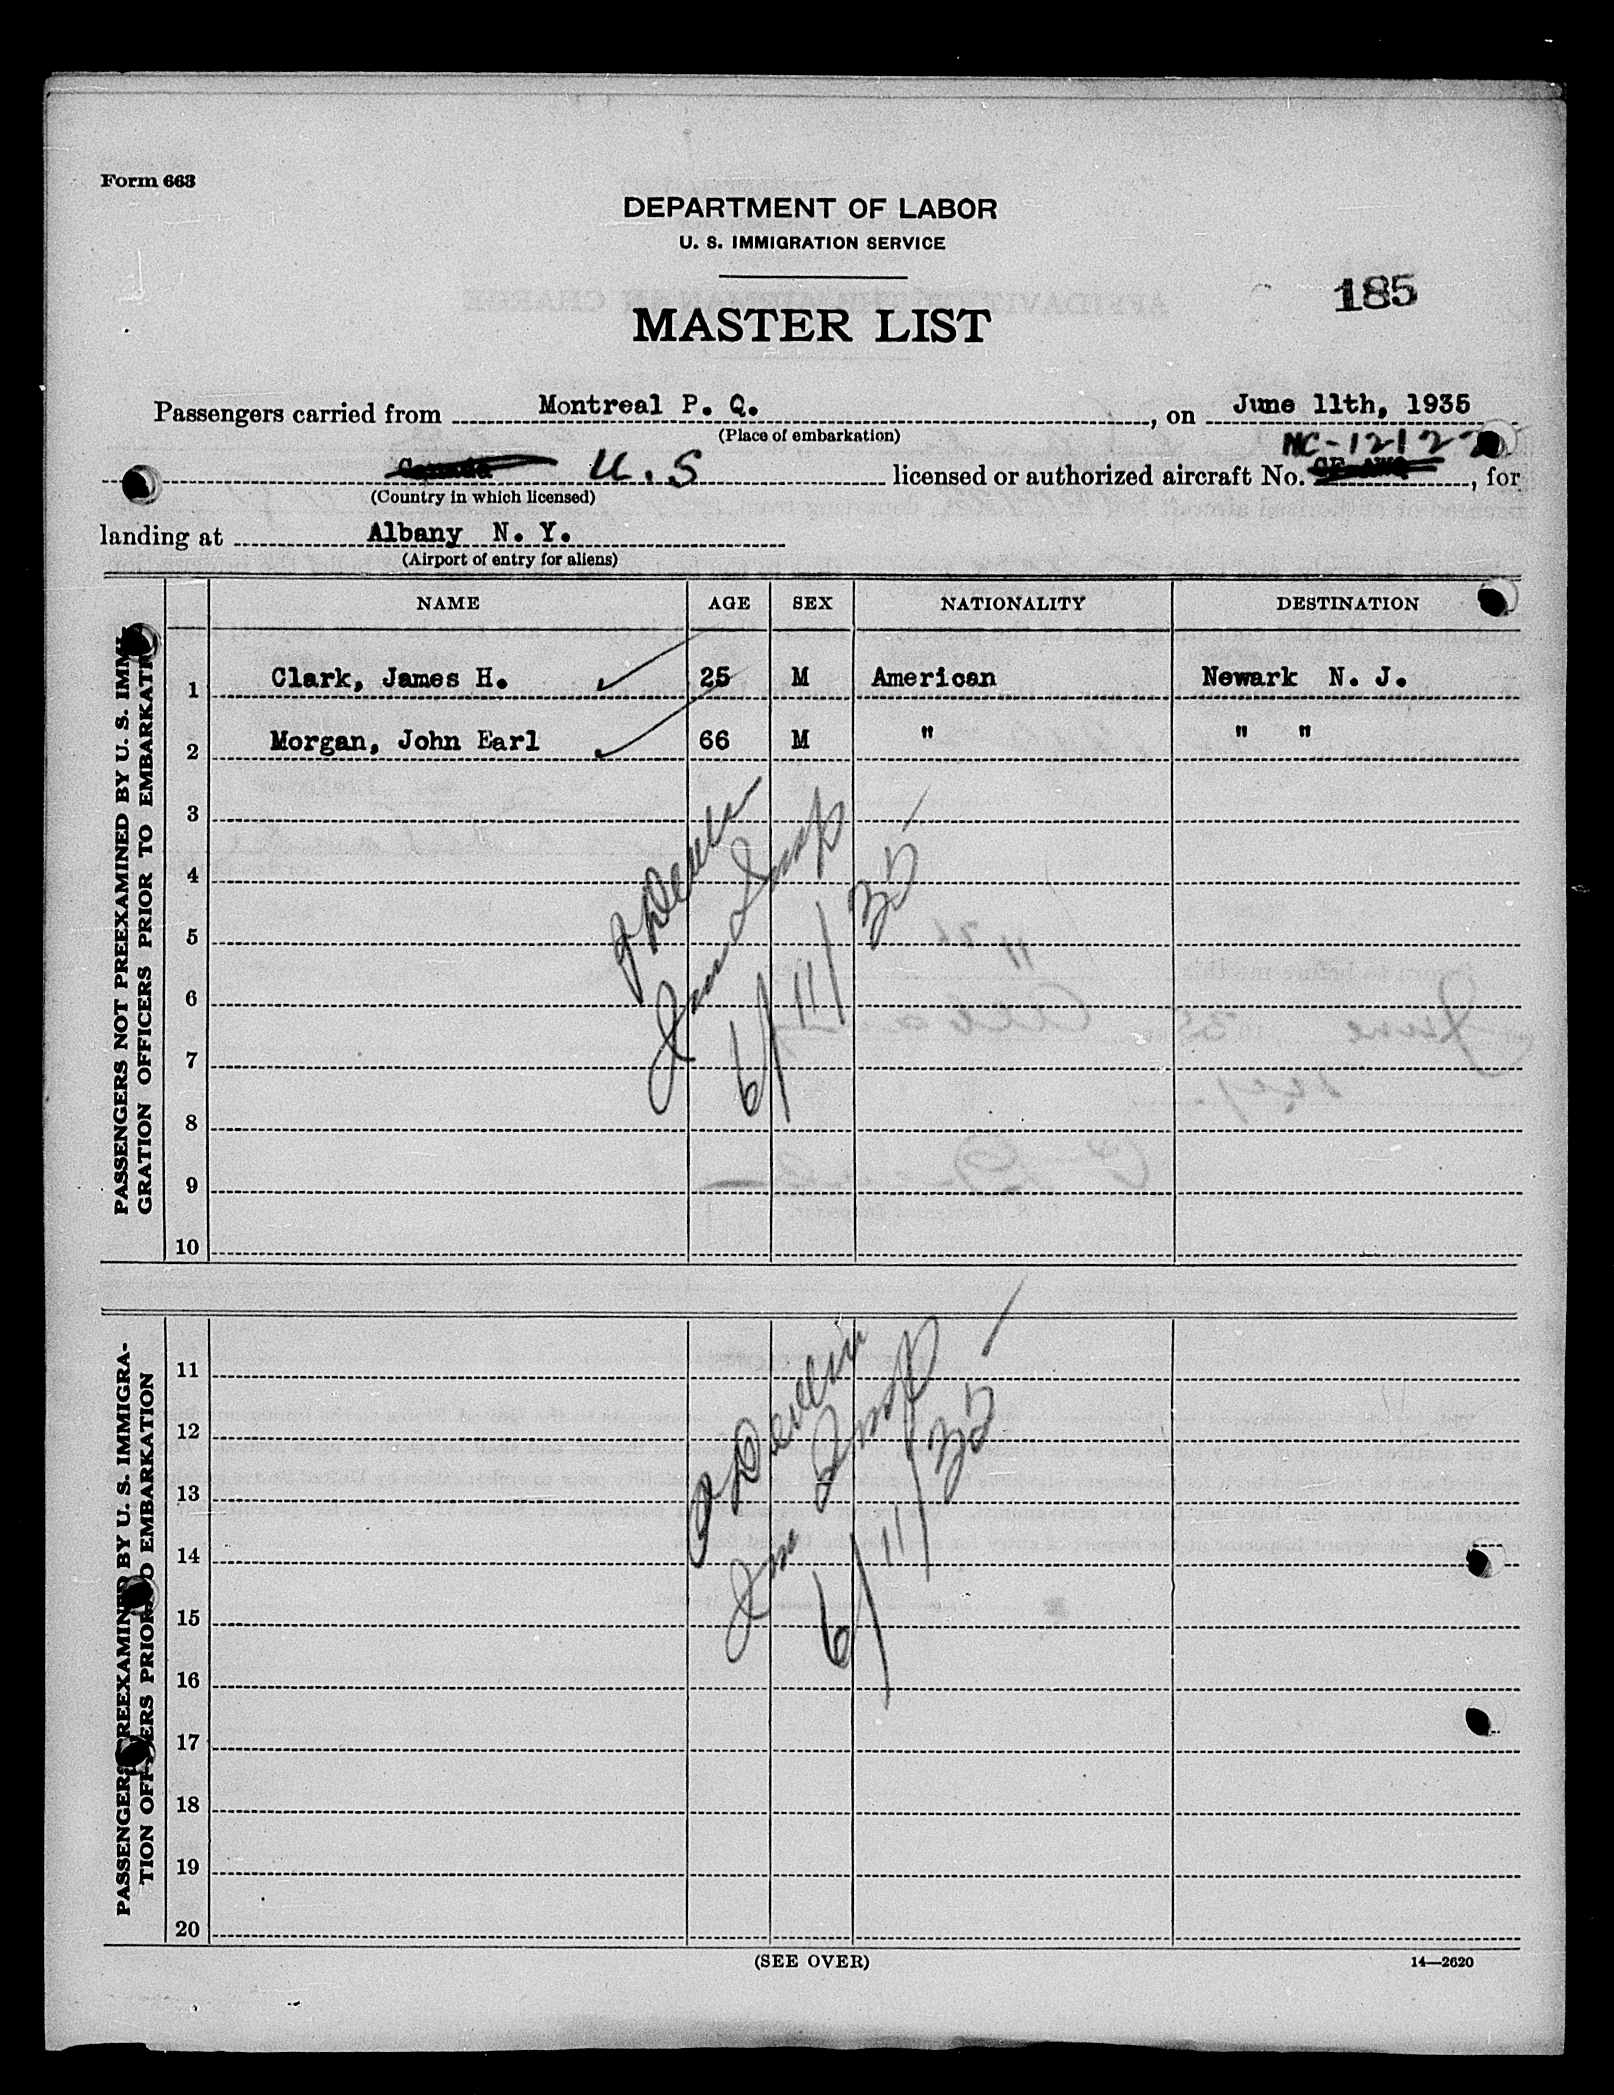 Form 663
DEPARTMENT OF LABOR
U. S. IMMIGRATION SERVICE
185
MASTER LIST
Passengers carried from Montreal P. Q., on June 11th, 1935
(Place of embarkation)
NC-12122
Canada U.S licensed or authorized aircraft No. , for
(Country in which licensed)
landing at Albany N. Y.
(Airport of entry for aliens)
NAME AGE SEX NATIONALITY DESTINATION
PASSENGERS NOT PREEXAMINED BY U. S. IMMI-
GRATION OFFICERS PRIOR TO EMBARKATION
1 Clark, James H. 25 M American Newark N. J.
2 Morgan, John Earl 66 M " " "
3
4
5
6
7
8
9
10
Imm Insp
6/11/35
PASSENGERS PREEXAMINED BY U. S. IMMIGRA-
TION OFFICERS PRIOR TO EMBARKATION
11
12
13
14
15
16
17
18
19
20
Imm Insp
6/11/35
(SEE OVER)
14—2620